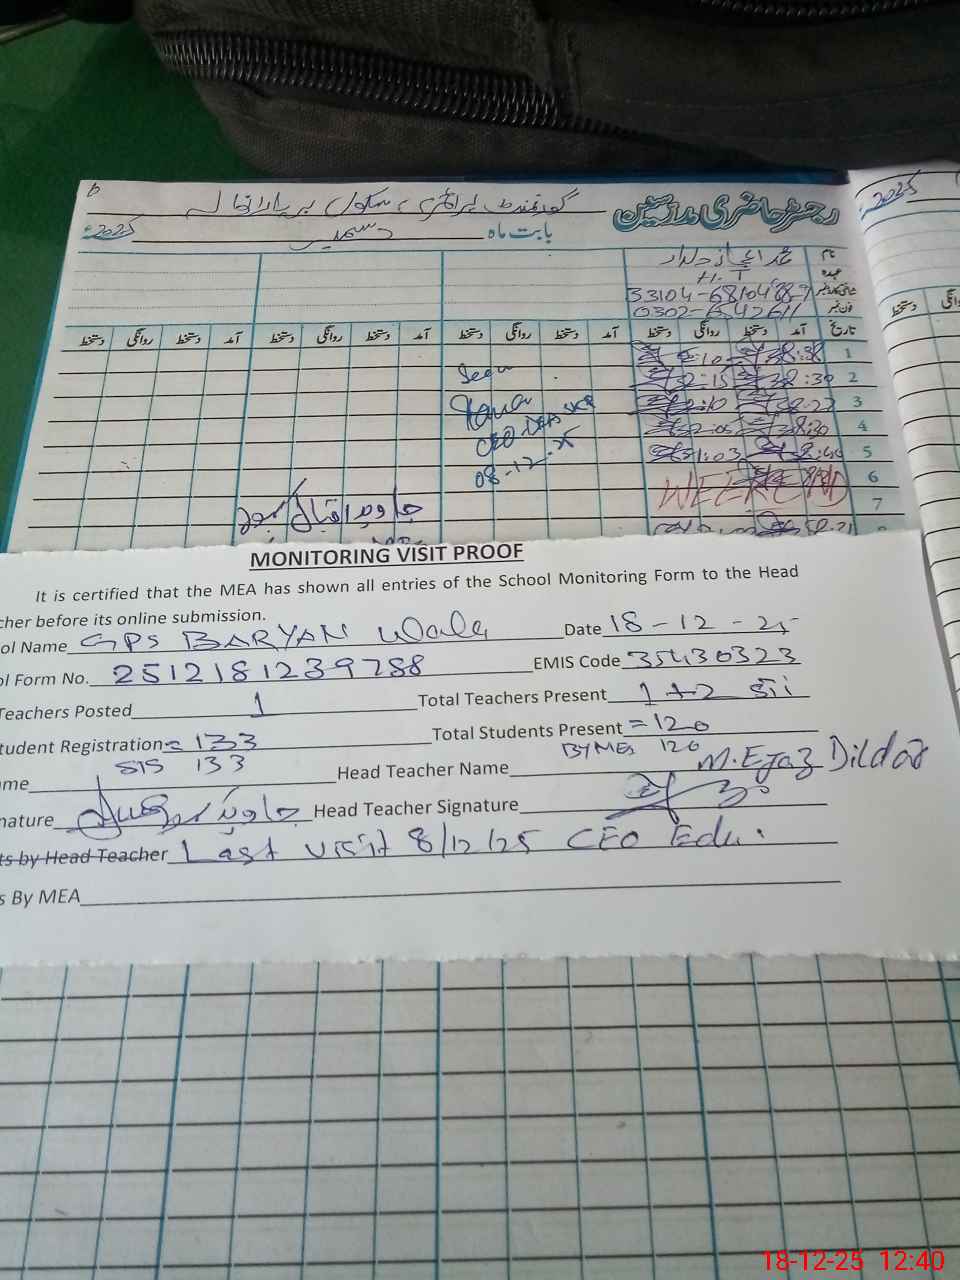 رجسٹر حاضری مدرسین گورنمنٹ پرائمری سکول بریانوالہ 2025ء
بابت ماہ دسمبر 2025ء
نام
عہدہ H.T
شناختی کارڈ نمبر
فون نمبر
تاریخ آمد دستخط روانگی دستخط آمد دستخط روانگی دستخط آمد دستخط روانگی دستخط آمد دستخط روانگی دستخط
1
2 8:30
3
4 8:30
5
6
7
WEEKEND
Seen
08-12-25
MONITORING VISIT PROOF
It is certified that the MEA has shown all entries of the School Monitoring Form to the Head
cher before its online submission.
ol Name GPS BARYAN Wala Date 18-12-25
ol Form No. 2512181239788 EMIS Code 35430323
Teachers Posted 1 Total Teachers Present 1+2 Sti
tudent Registration = 133 Total Students Present = 120
SIS 133 BY MEA 120
me Head Teacher Name M. Ejaz Dildar
nature Head Teacher Signature
ts by Head Teacher Last visit 8/12/25 CEO Edu.
s By MEA
18-12-25 12:40